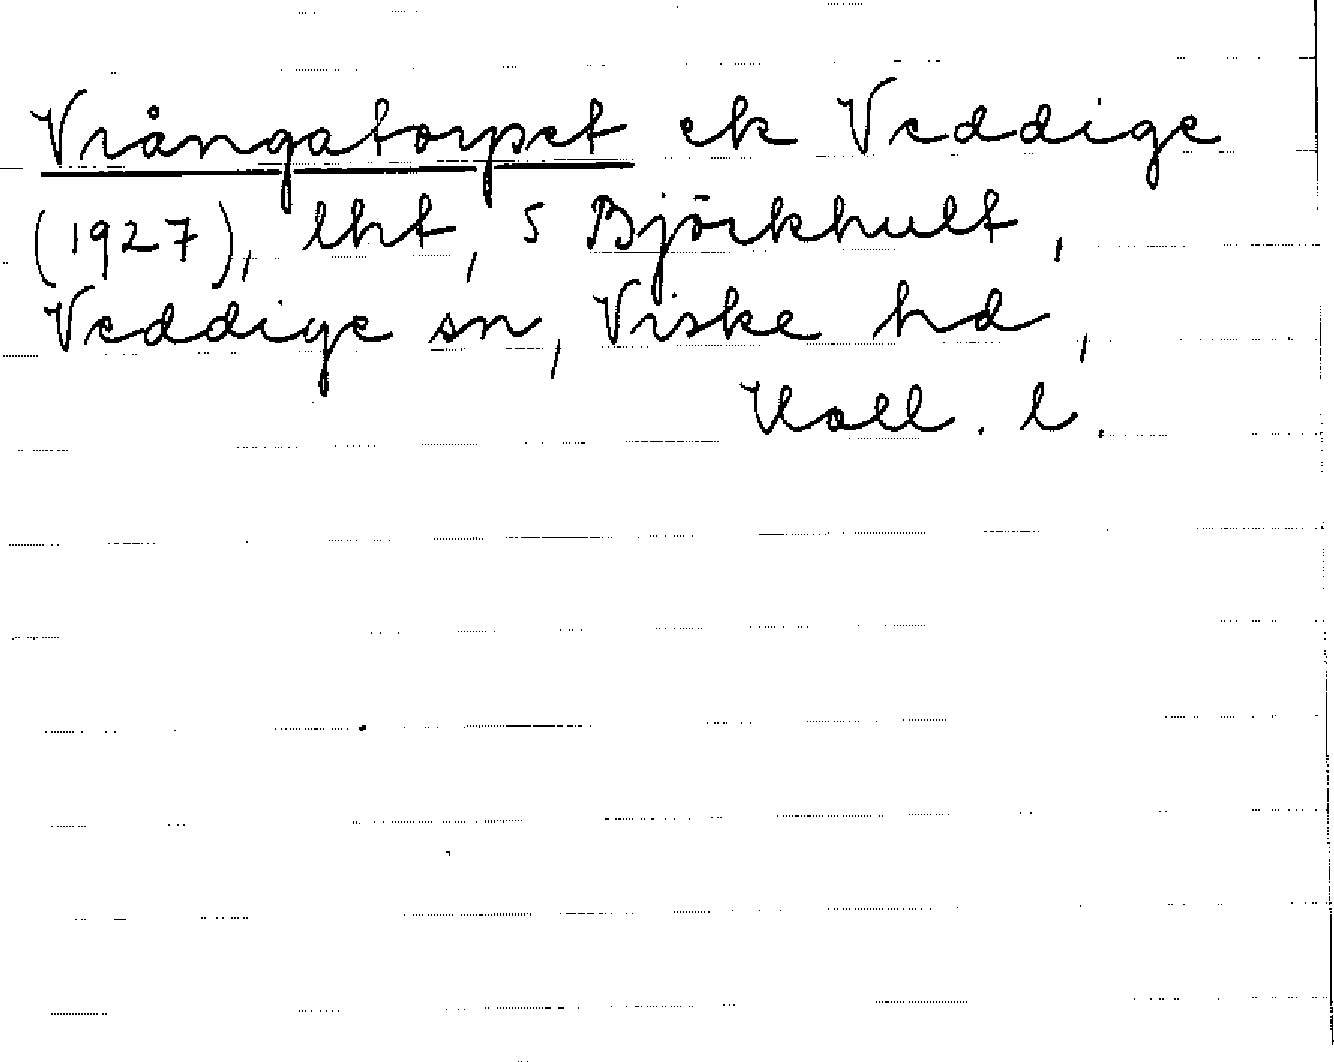 Vrångatorpet ek Veddige
(1927), lht, S Björkhult,
Veddige sn, Viske hd,
Hall. l.